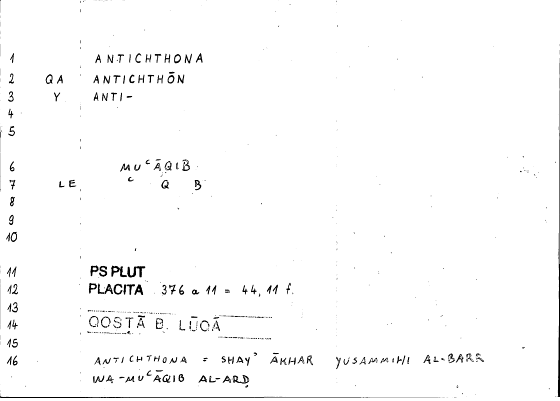 1 ANTICHTHONA
2 QA ANTICHTHŌN
3 Y ANTI-
4
5
6 MUʿĀQIB
7 LE ʿ Q B
8
9
10
11 PS PLUT
12 PLACITA 376 a 11 = 44, 11 f.
13
14 QOSṬĀ B. LŪQĀ
15
16 ANTICHTHONA = SHAYʾ ĀKHAR YUSAMMIHI AL-BARR
WA-MUʿĀQIB AL-ARḌ